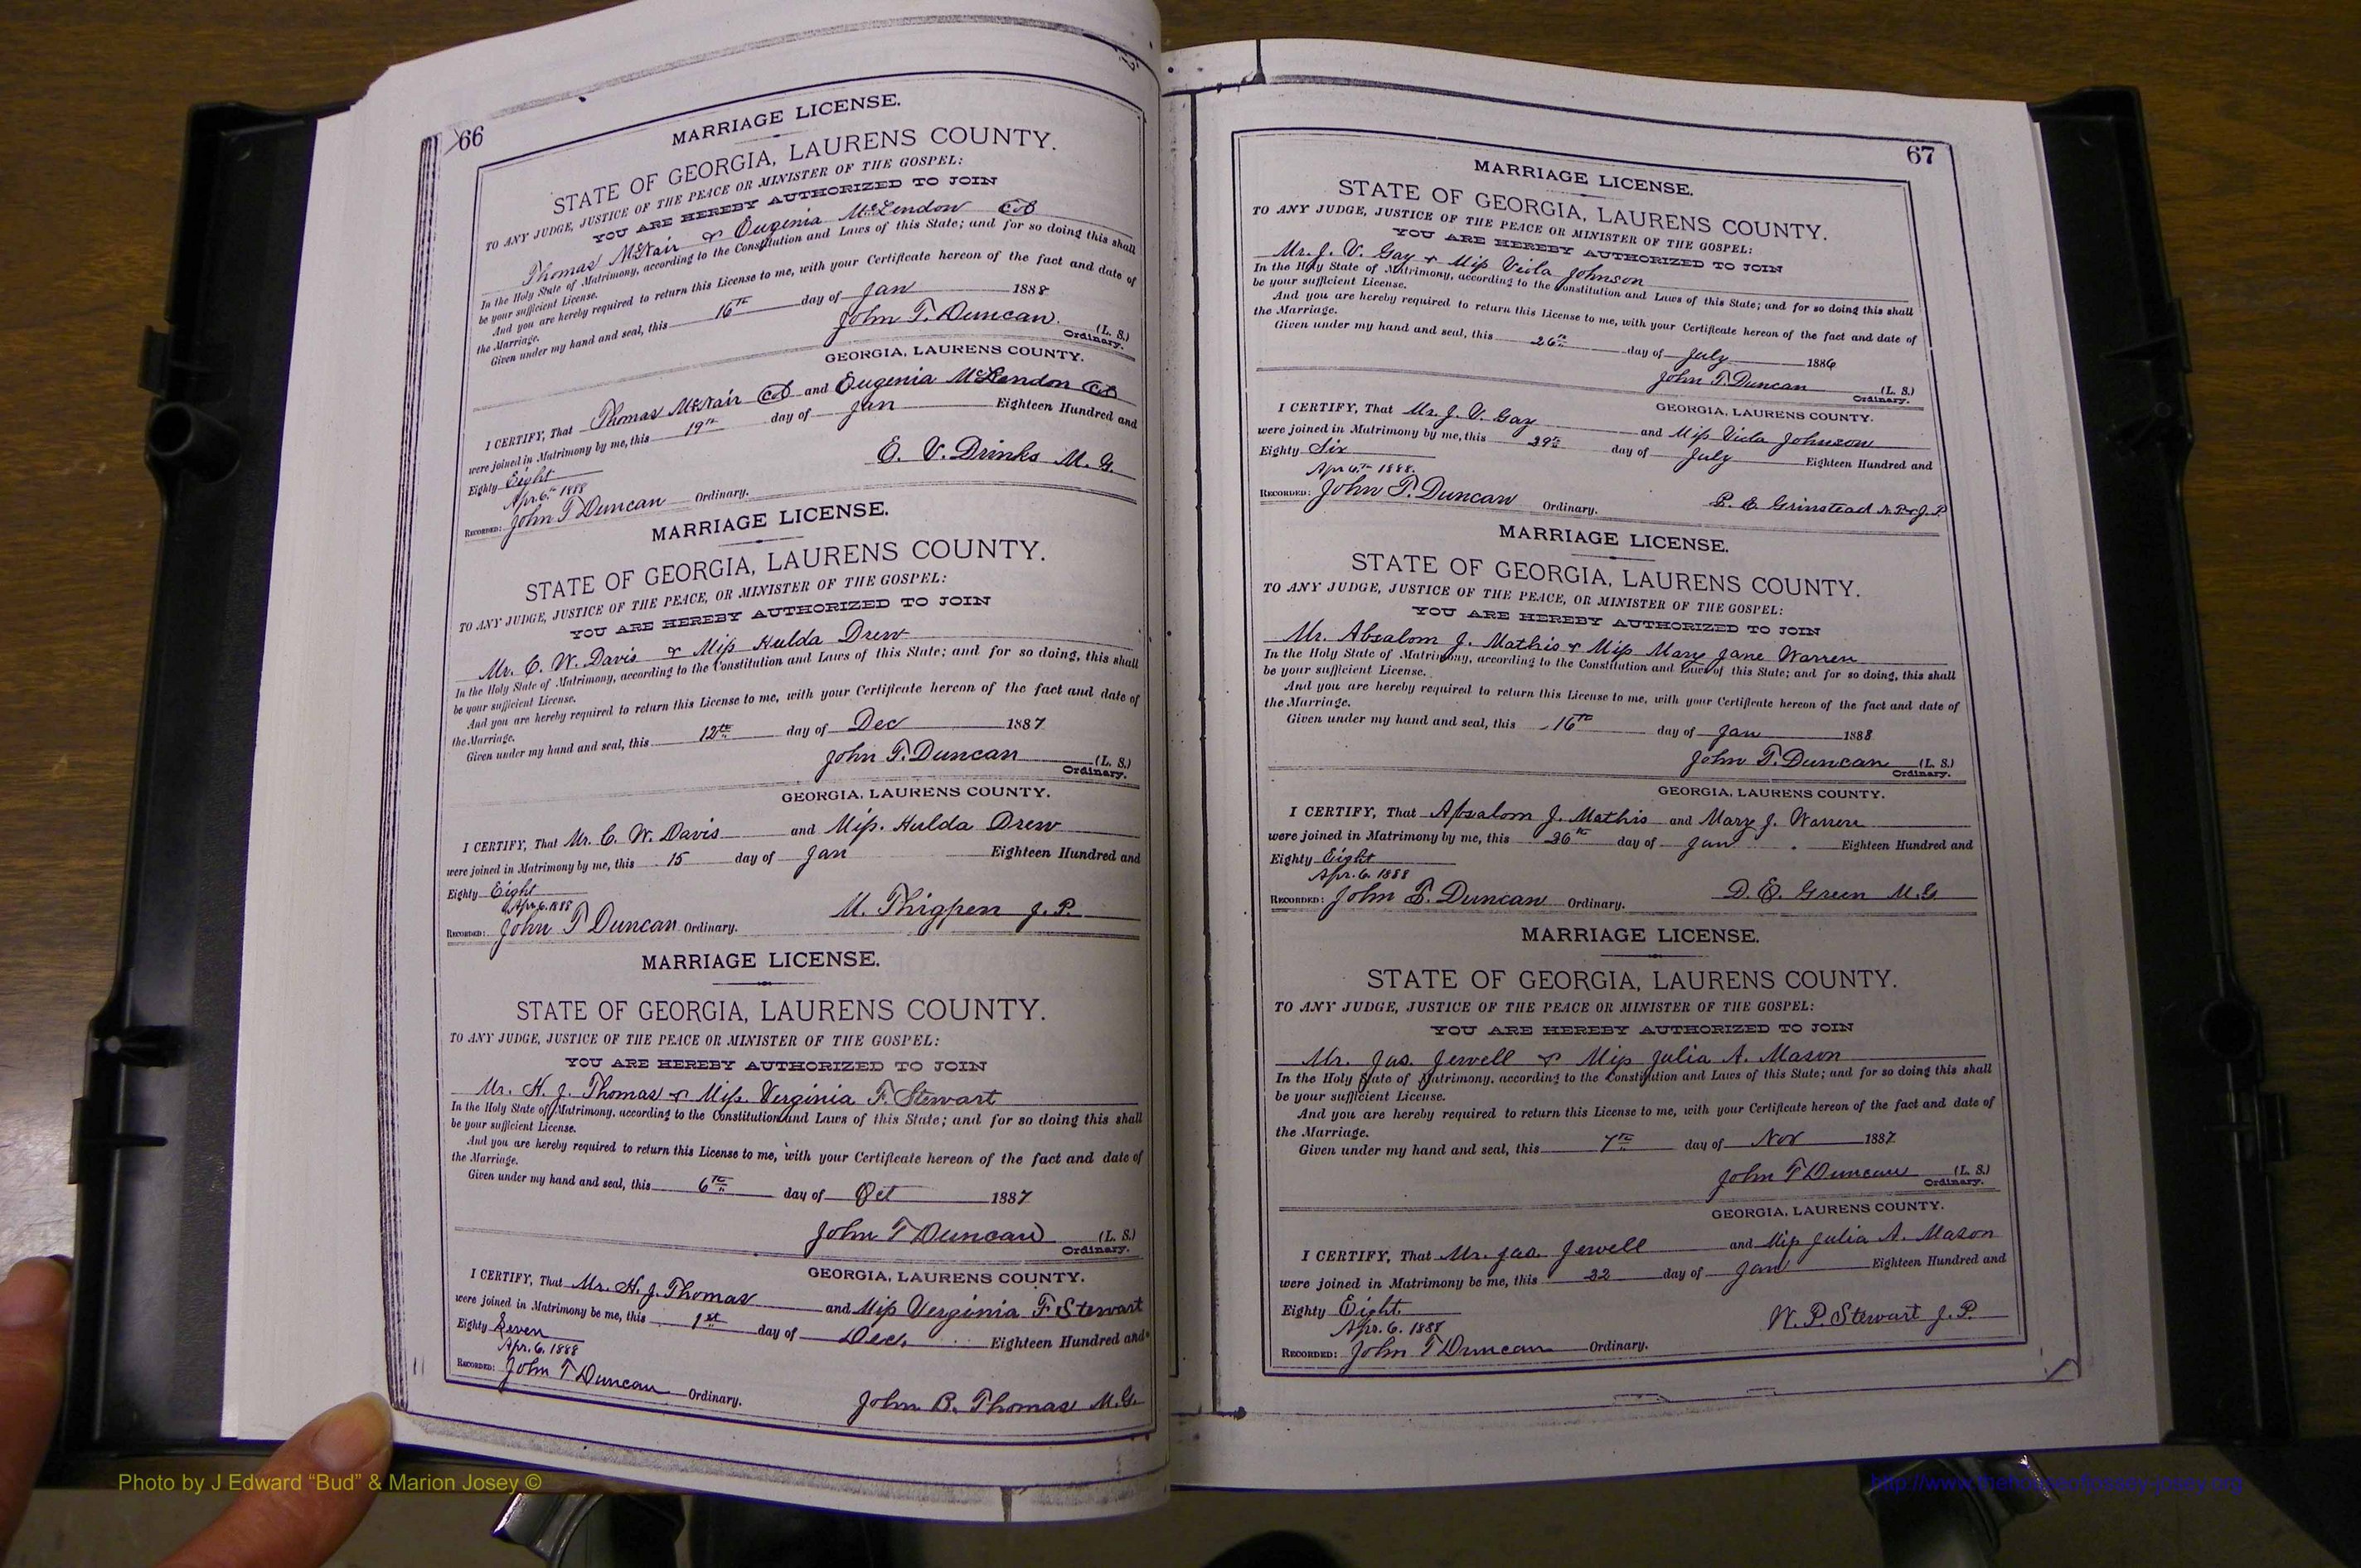 66
MARRIAGE LICENSE.
STATE OF GEORGIA, LAURENS COUNTY.
TO ANY JUDGE, JUSTICE OF THE PEACE OR MINISTER OF THE GOSPEL:
YOU ARE HEREBY AUTHORIZED TO JOIN
Thomas McNair & Eugenia McLendon Col
In the Holy State of Matrimony, according to the Constitution and Laws of this State; and for so doing this shall
be your sufficient License.
And you are hereby required to return this License to me, with your Certificate hereon of the fact and date of
the Marriage.
Given under my hand and seal, this 16th day of Jan 1888
John T. Duncan. (L. S.)
Ordinary.
GEORGIA, LAURENS COUNTY.
I CERTIFY, That Thomas McNair Col and Eugenia McLendon Col
were joined in Matrimony by me, this 19th day of Jan Eighteen Hundred and
Eighty Eight
Apr. 6th 1888
E. V. Drinks M. G.
RECORDED: John T Duncan Ordinary.
MARRIAGE LICENSE.
STATE OF GEORGIA, LAURENS COUNTY.
TO ANY JUDGE, JUSTICE OF THE PEACE, OR MINISTER OF THE GOSPEL:
YOU ARE HEREBY AUTHORIZED TO JOIN
Mr. C. W. Davis & Miss Hulda Drew
In the Holy State of Matrimony, according to the Constitution and Laws of this State; and for so doing, this shall
be your sufficient License.
And you are hereby required to return this License to me, with your Certificate hereon of the fact and date of
the Marriage.
Given under my hand and seal, this 12th day of Dec 1887
John T. Duncan (L. S.)
Ordinary.
GEORGIA, LAURENS COUNTY.
I CERTIFY, That Mr. C. W. Davis and Miss. Hulda Drew
were joined in Matrimony by me, this 15 day of Jan Eighteen Hundred and
Eighty Eight
Apr. 6. 1888
M. Thigpen J. P.
RECORDED: John T Duncan Ordinary.
MARRIAGE LICENSE.
STATE OF GEORGIA, LAURENS COUNTY.
TO ANY JUDGE, JUSTICE OF THE PEACE OR MINISTER OF THE GOSPEL:
YOU ARE HEREBY AUTHORIZED TO JOIN
Mr. H. J. Thomas & Miss. Verginia F. Stewart
In the Holy State of Matrimony, according to the Constitution and Laws of this State; and for so doing this shall
be your sufficient License.
And you are hereby required to return this License to me, with your Certificate hereon of the fact and date of
the Marriage.
Given under my hand and seal, this 6th day of Oct 1887
John T Duncan (L. S.)
Ordinary.
GEORGIA, LAURENS COUNTY.
I CERTIFY, That Mr. H. J. Thomas and Miss Verginia F. Stewart
were joined in Matrimony be me, this 1st day of Dec. Eighteen Hundred and
Eighty Seven
Apr. 6. 1888
RECORDED: John T Duncan Ordinary.
John B. Thomas M.G.
67
MARRIAGE LICENSE.
STATE OF GEORGIA, LAURENS COUNTY.
TO ANY JUDGE, JUSTICE OF THE PEACE OR MINISTER OF THE GOSPEL:
YOU ARE HEREBY AUTHORIZED TO JOIN
Mr. J. V. Gay & Miss Viola Johnson
In the Holy State of Matrimony, according to the Constitution and Laws of this State; and for so doing this shall
be your sufficient License.
And you are hereby required to return this License to me, with your Certificate hereon of the fact and date of
the Marriage.
Given under my hand and seal, this 26th day of July 1886
John T. Duncan (L. S.)
Ordinary.
GEORGIA, LAURENS COUNTY.
I CERTIFY, That Mr. J. V. Gay and Miss Viola Johnson
were joined in Matrimony by me, this 29th day of July Eighteen Hundred and
Eighty Six
Apr 6th 1888.
RECORDED: John T. Duncan Ordinary.
Grinstead N.P & J.P.
MARRIAGE LICENSE.
STATE OF GEORGIA, LAURENS COUNTY.
TO ANY JUDGE, JUSTICE OF THE PEACE, OR MINISTER OF THE GOSPEL:
YOU ARE HEREBY AUTHORIZED TO JOIN
Mr. Absalom J. Mathis & Miss Mary Jane Warren
In the Holy State of Matrimony, according to the Constitution and Laws of this State; and for so doing, this shall
be your sufficient License.
And you are hereby required to return this License to me, with your Certificate hereon of the fact and date of
the Marriage.
Given under my hand and seal, this 16th day of Jan 1888
John T. Duncan (L. S.)
Ordinary.
GEORGIA, LAURENS COUNTY.
I CERTIFY, That Absalom J. Mathis and Mary J. Warren
were joined in Matrimony by me, this 26th day of Jan Eighteen Hundred and
Eighty Eight
Apr. 6. 1888
RECORDED: John T. Duncan Ordinary.
D. E. Green M.G
MARRIAGE LICENSE.
STATE OF GEORGIA, LAURENS COUNTY.
TO ANY JUDGE, JUSTICE OF THE PEACE OR MINISTER OF THE GOSPEL:
YOU ARE HEREBY AUTHORIZED TO JOIN
Mr. Jas. Jewell & Miss Julia A. Mason
In the Holy State of Matrimony, according to the Constitution and Laws of this State; and for so doing this shall
be your sufficient License.
And you are hereby required to return this License to me, with your Certificate hereon of the fact and date of
the Marriage.
Given under my hand and seal, this 7th day of Nov 1887
John T Duncan (L. S.)
Ordinary.
GEORGIA, LAURENS COUNTY.
I CERTIFY, That Mr. Jas. Jewell and Miss Julia A. Mason
were joined in Matrimony be me, this 22 day of Jan Eighteen Hundred and
Eighty Eight
Apr. 6. 1888
W. P. Stewart J. P.
RECORDED: John T Duncan Ordinary.
Photo by J Edward “Bud” & Marion Josey ©